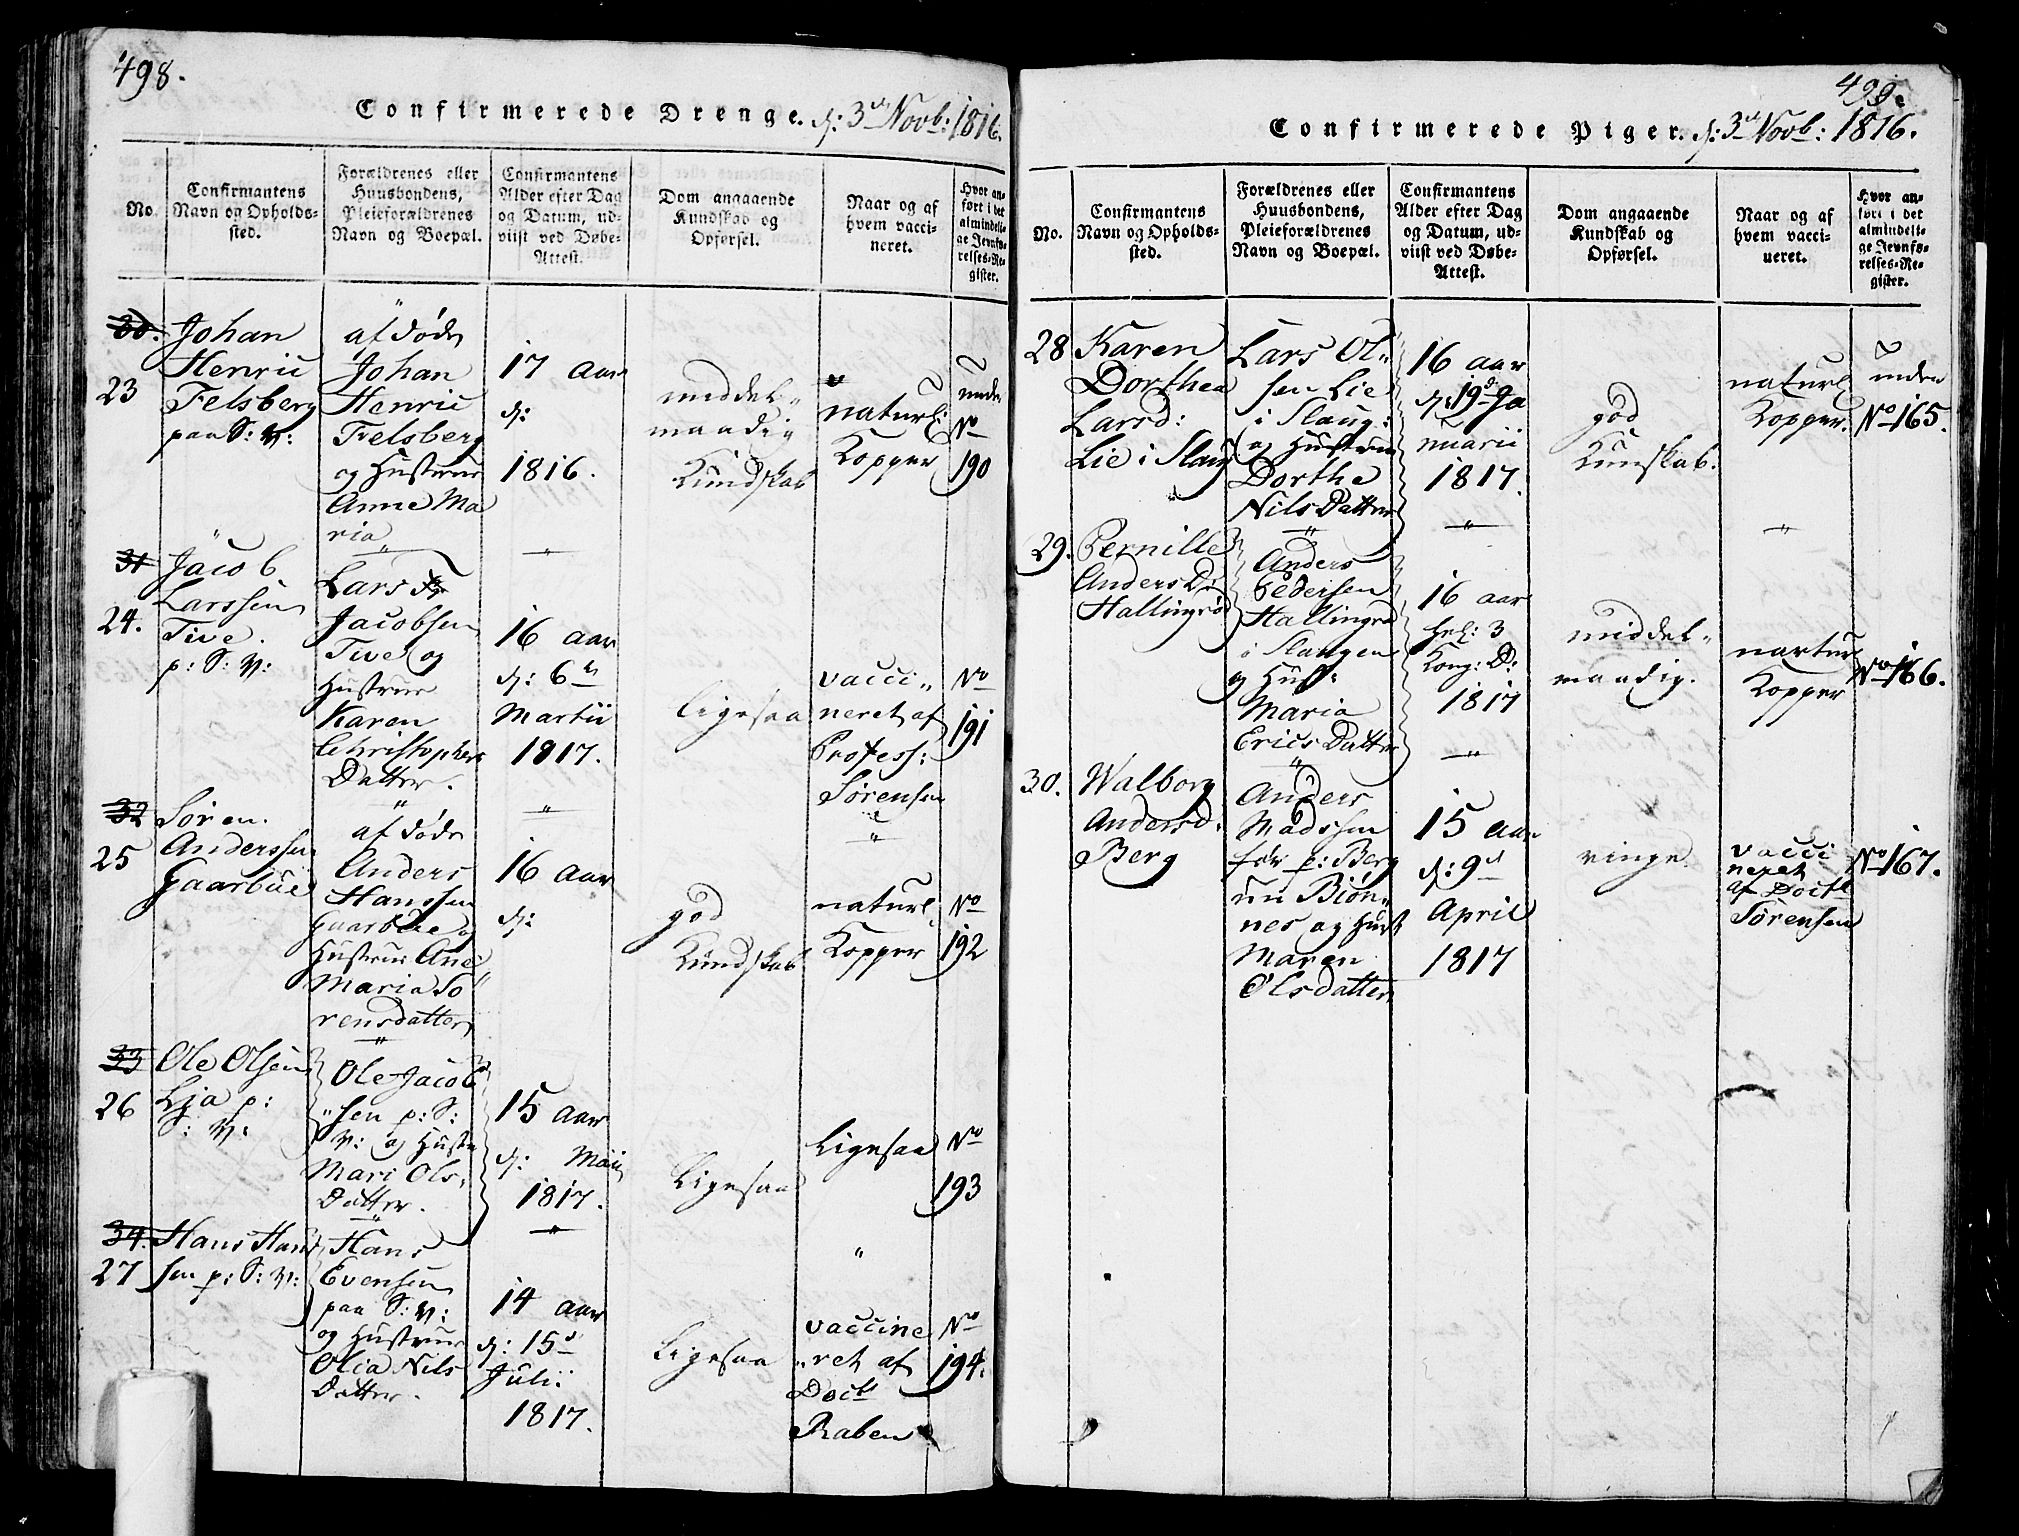 498.
Confirmerede Drenge. d: 3die Novb: 1816.
No.
Confirmantens
Navn og Opholds-
sted.
Forældrenes eller
Huusbondens,
Pleieforældrenes
Navn og Boepæl.
Confirmantens
Alder efter Dag
og Datum, ud-
viist ved Døbe-
Attest.
Dom angaaende
Kundskab og
Opførsel.
Naar og af
hvem vacci-
neret.
Hvor an-
ført i det
almindeli-
ge Jevnfø-
relses-Re-
gister.
30.
23
Johan
Henric
Felsberg
paa S: V:
afdøde
Johan
Henric
Felsberg
og Hustrue
Anne Ma
ria
17 Aar
d:
1816.
middel-
maadig
Kundskab
naturl:
Kopper
under
No
190
31
24.
Jacob
Larssen
Tive.
p: S: V:
Lars
Jacobsen
Tive og
Hustrue
Karen
Christophers
Datter.
16 Aar
d: 6te
Martii
1817.
Ligesaa
vacci-
neret af
Profess:
Sørensen
No
191
32
25
Søren
Anderssen
Gaarbue
afdøde
Anders
Hanssen
Gaarbue og
Hustrue Ane
Maria So
rensdatter
16 Aar
d:
god
Kundskab
naturl
Kopper
No
192
33
26
Ole Olsen
Lja p:
S: V:
Ole Jacob
sen p: S:
V: og Hustr
Mari Ols
Datter.
15 Aar
d: Maii
1817.
Ligesaa
Ligesaa
No
193
34.
27
Hans Han
sen p: S: V:
Hans
Evensen
paa S: V:
og Hustrue
Olia Nils
Datter.
14 Aar
d: 15d
Julii
1817.
Ligesaa
vaccine
ret af
Doct
Raben
No
194.
499.
Confirmerede Piger. d: 3die Novb: 1816.
No.
Confirmantens
Navn og Opholds-
sted.
Forældrenes eller
Huusbondens,
Pleieforældrenes
Navn og Boepæl.
Confirmantens
Alder efter Dag
og Datum, ud-
viist ved Døbe-
Attest.
Dom angaaende
Kundskab og
Opførsel.
Naar og af
hvem vacci-
neret.
Hvor an-
ført i det
almindeli-
ge Jevnfø-
relses-Re-
gister.
28
Karen
Dorthea
Larsd:
Lie i Slaug
Lars Ol-
sen Lie
i Slaug:
og Hustrue
Dorthe
Nils Datter
16 aar
d: 19d Ja
nuarii
1817.
god
Kunskab.
naturl
Kopper.
under
No 165.
29.
Pernille
Anders D:
Hallingrød
Anders
Pedersen
Hallingrø
i Slaugen
og Hust:
Maria
Erics Datter
16 aar
Hel: 3
Kong: D:
1817
middel-
maadig.
nartur
Kopper
No 166.
30.
Walborg
Andersd.
Berg
Anders
Madssen
før p: Berg
nu Biøn-
nes og Hust
Maren
Olsdatter
15 aar
d: 9d
April
1817
ringe.
vacci
neret
af Doct
Sørensen
No 167.